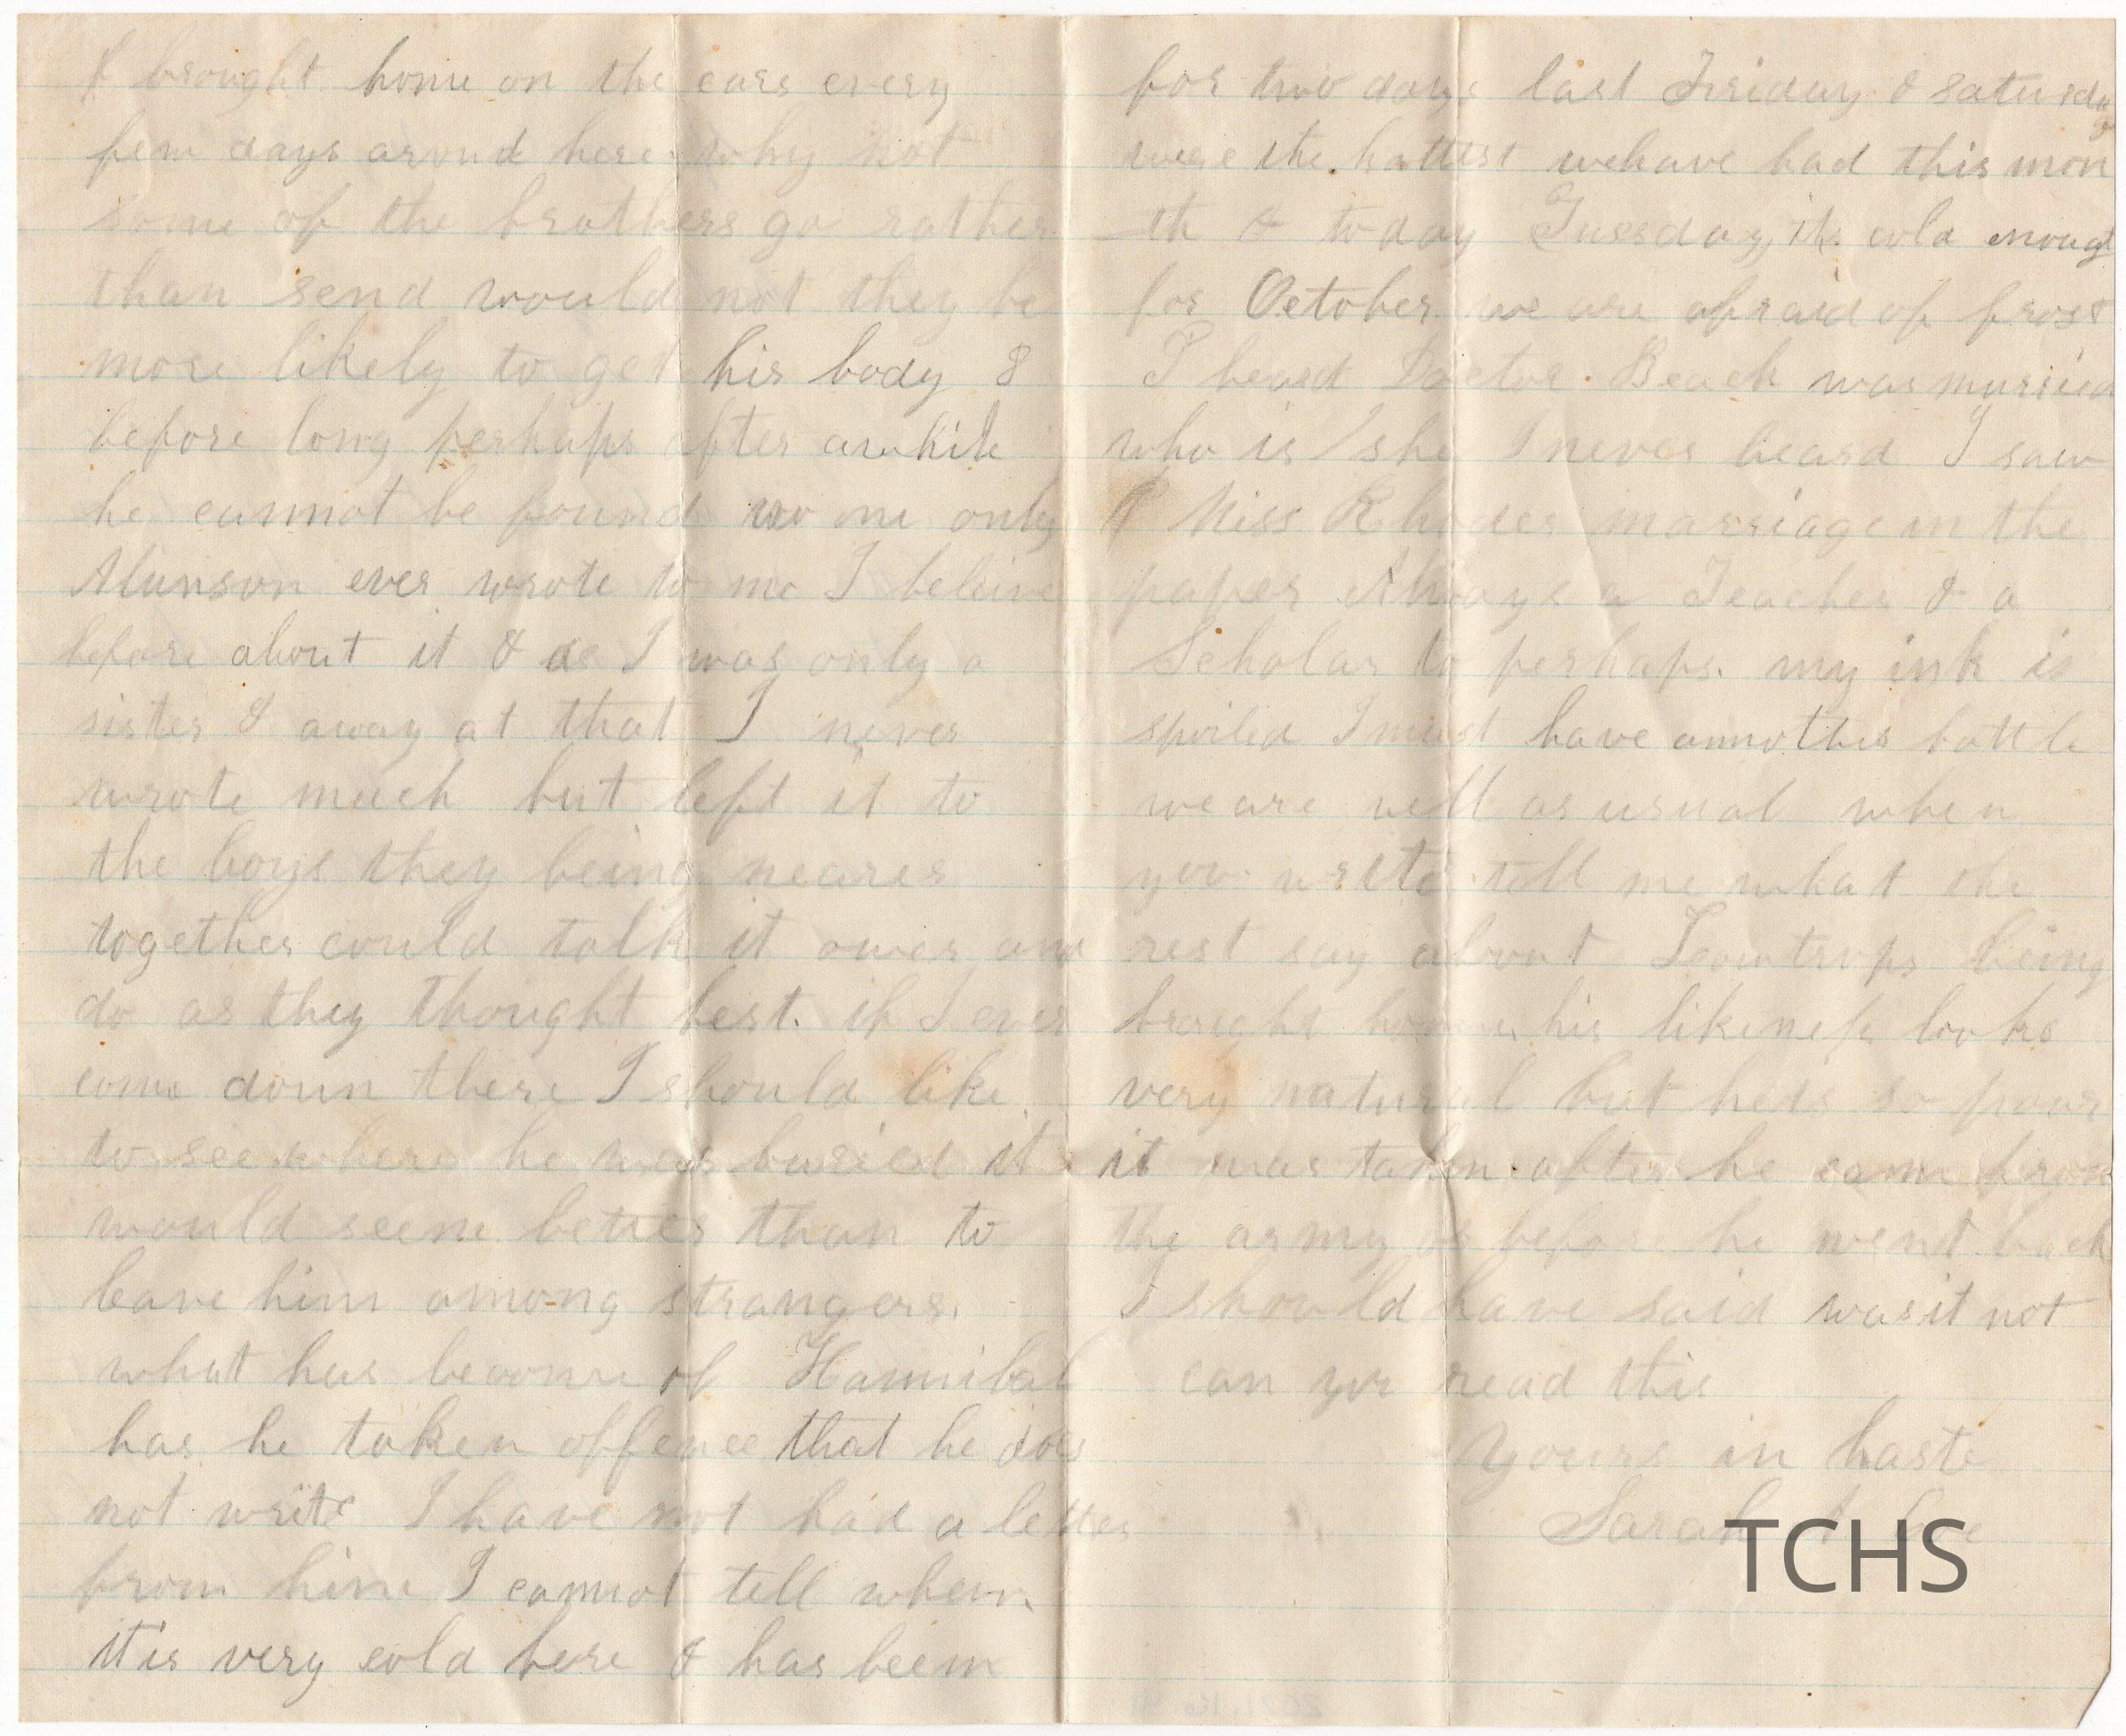 & brought home on the cars every
few days around here why not
some of the brothers go rather
than send would not they be
more likely to get his body &
before long perhaps after awhile
he cannot be found no one only
Alunson ever wrote to me I beleive
before about it & as I was only a
sister & away at that I never
wrote much but left it to
the boys they being nearer
together could talk it over and
do as they thought best. if I ever
come down there I should like
to see where he was buried it
would seem better than to
leave him among strangers.
what has become of Hannibal
has he taken offence that he does
not write I have not had a letter
from him I cannot tell when.
it is very cold here & has been
for two days last Friday & Saturday
were the hattest we have had this mon
th & today Tuesday its cold enough
for October we are afraid of frost
I heard Doctor Beach was married
who is she I never heard I saw
Miss Rhodes marriage in the
paper Always a Teacher & a
Scholar to perhaps. my ink is
spoiled I must have annother bottle
we are well as usual when
you write tell me what the
rest say about being
brought home his likeness looks
very natural but he is so poor
it was taken after he came from
the army or before he went back
I should have said was it not
can you read this
Yours in haste
Sarah
TCHS